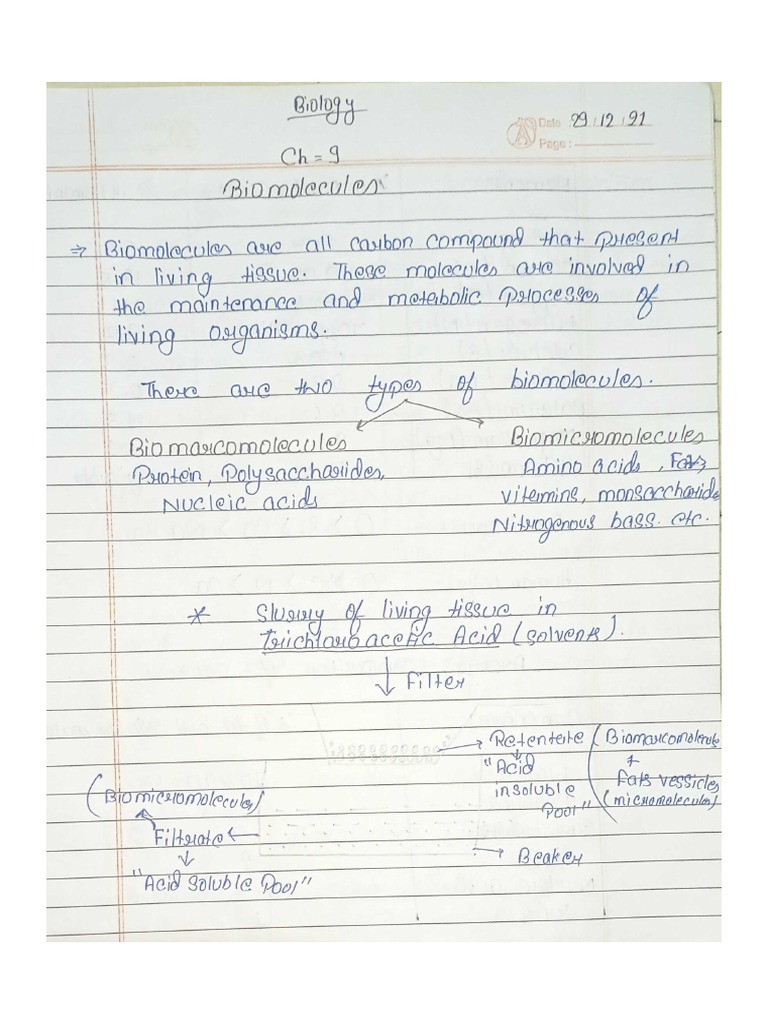 Biology
Date 29/12/21
Page :
Ch = 9
Biomolecules
⇒ Biomolecules are all carbon compound that present
in living tissue. These molecules are involved in
the maintenance and metabolic processes of
living organisms.
There are two types of biomolecules.
Biomarcomolecules
Protein, Polysaccharides,
Nucleic acids
Biomicromolecules
Amino acids, Fats,
vitamins, monsaccharide
Nitrogenous bass. etc.
* Slurry of living tissue in
Trichloroacetic Acid (solvents).
↓ Filter
→ Retentate (Biomarcomolecule
+
Fats vessicles
(micromolecules)
↓
"Acid
insoluble
Pool"
(Biomicromolecules)
Filtrate ←
↓
"Acid Soluble Pool"
→ Beaker